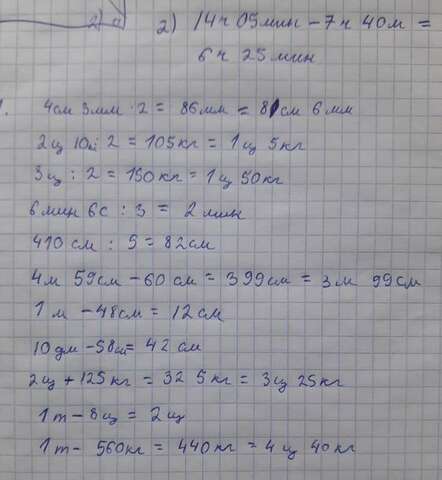 2) 14ч 05мин - 7ч 40м =
6ч 25мин
1.
4см 3мм · 2 = 86мм = 8см 6мм
2ц 10к : 2 = 105кг = 1ц 5кг
3ц : 2 = 150кг = 1ц 50кг
6мин 6с : 3 = 2мин
410 см : 5 = 82см
4м 59см - 60см = 399см = 3м 99см
1м - 48см = 12см
10дм - 58см = 42см
2ц + 125кг = 325кг = 3ц 25кг
1т - 8ц = 2ц
1т - 560кг = 440кг = 4ц 40кг